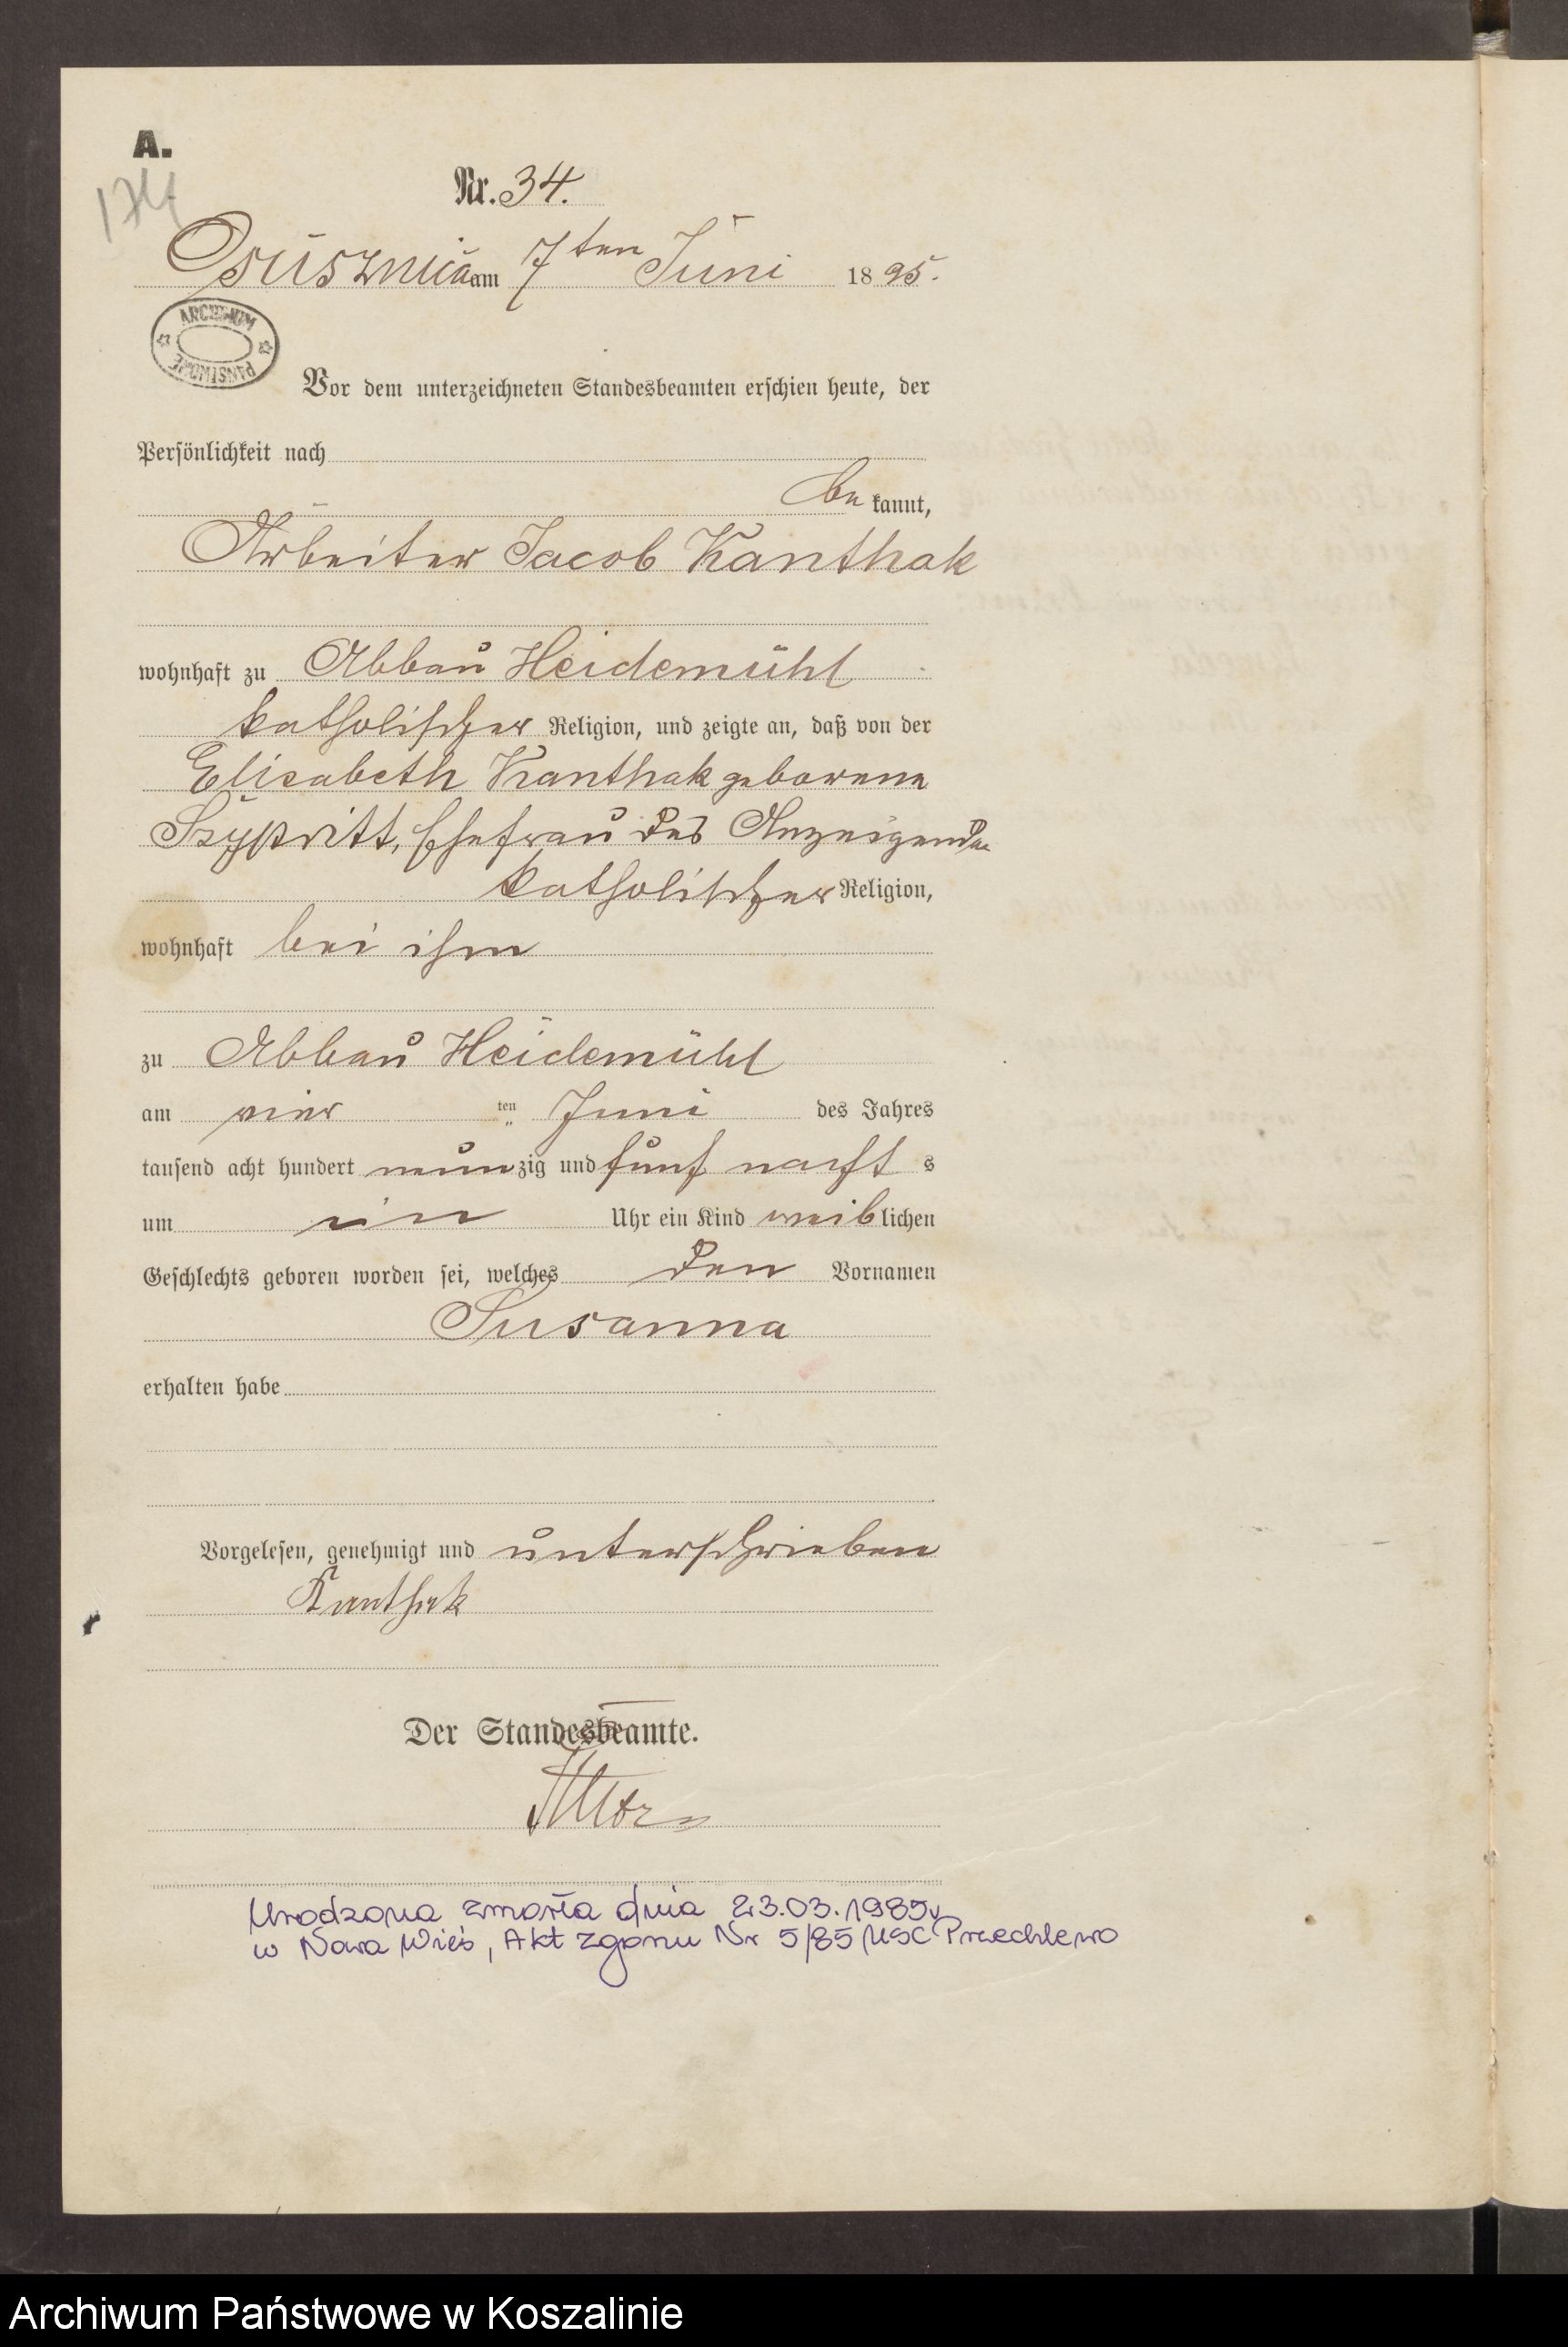 A.
174
Nr. 34.
Osusznica am 7ten Juni 1895.
ARCHIWUM PAŃSTWOWE
Vor dem unterzeichneten Standesbeamten erschien heute, der
Persönlichkeit nach
bekannt,
Arbeiter Jacob Kanthak
wohnhaft zu Abbau Heidemühl
katholischer Religion, und zeigte an, daß von der
Elisabeth Kanthak geborene
Szypritt, Ehefrau des Anzeigenden
katholischer Religion,
wohnhaft bei ihm
zu Abbau Heidemühl
am vier ten Juni des Jahres
tausend acht hundert neunzig und fünf nachts
um ein Uhr ein Kind weiblichen
Geschlechts geboren worden sei, welches den Vornamen
Susanna
erhalten habe
Vorgelesen, genehmigt und unterschrieben
Kanthak
Der Standesbeamte.
Urodzona zmarła dnia 23.03.1985r
w Nowa Wieś, Akt zgonu Nr 5/85 USC Przechlewo
Archiwum Państwowe w Koszalinie